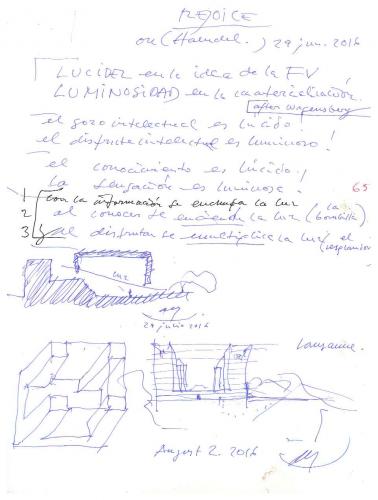 REJOICE
on (Haendel.) 29 jun. 2016
LUCIDEZ en la idea de la FV
LUMINOSIDAD en la materialización.
after Wagensberg
el gozo intelectual es lúcido!
el disfrute intelectual es luminoso!
el conocimiento es lúcido!
la sensación es luminosa.
65
1 con la información se enchufa la luz
2 al conocer se enciende la luz (la bombilla)
3 y al disfrutar se multiplica la luz (el resplandor
luz
29 julio 2016
Lausanne.
August 2. 2016